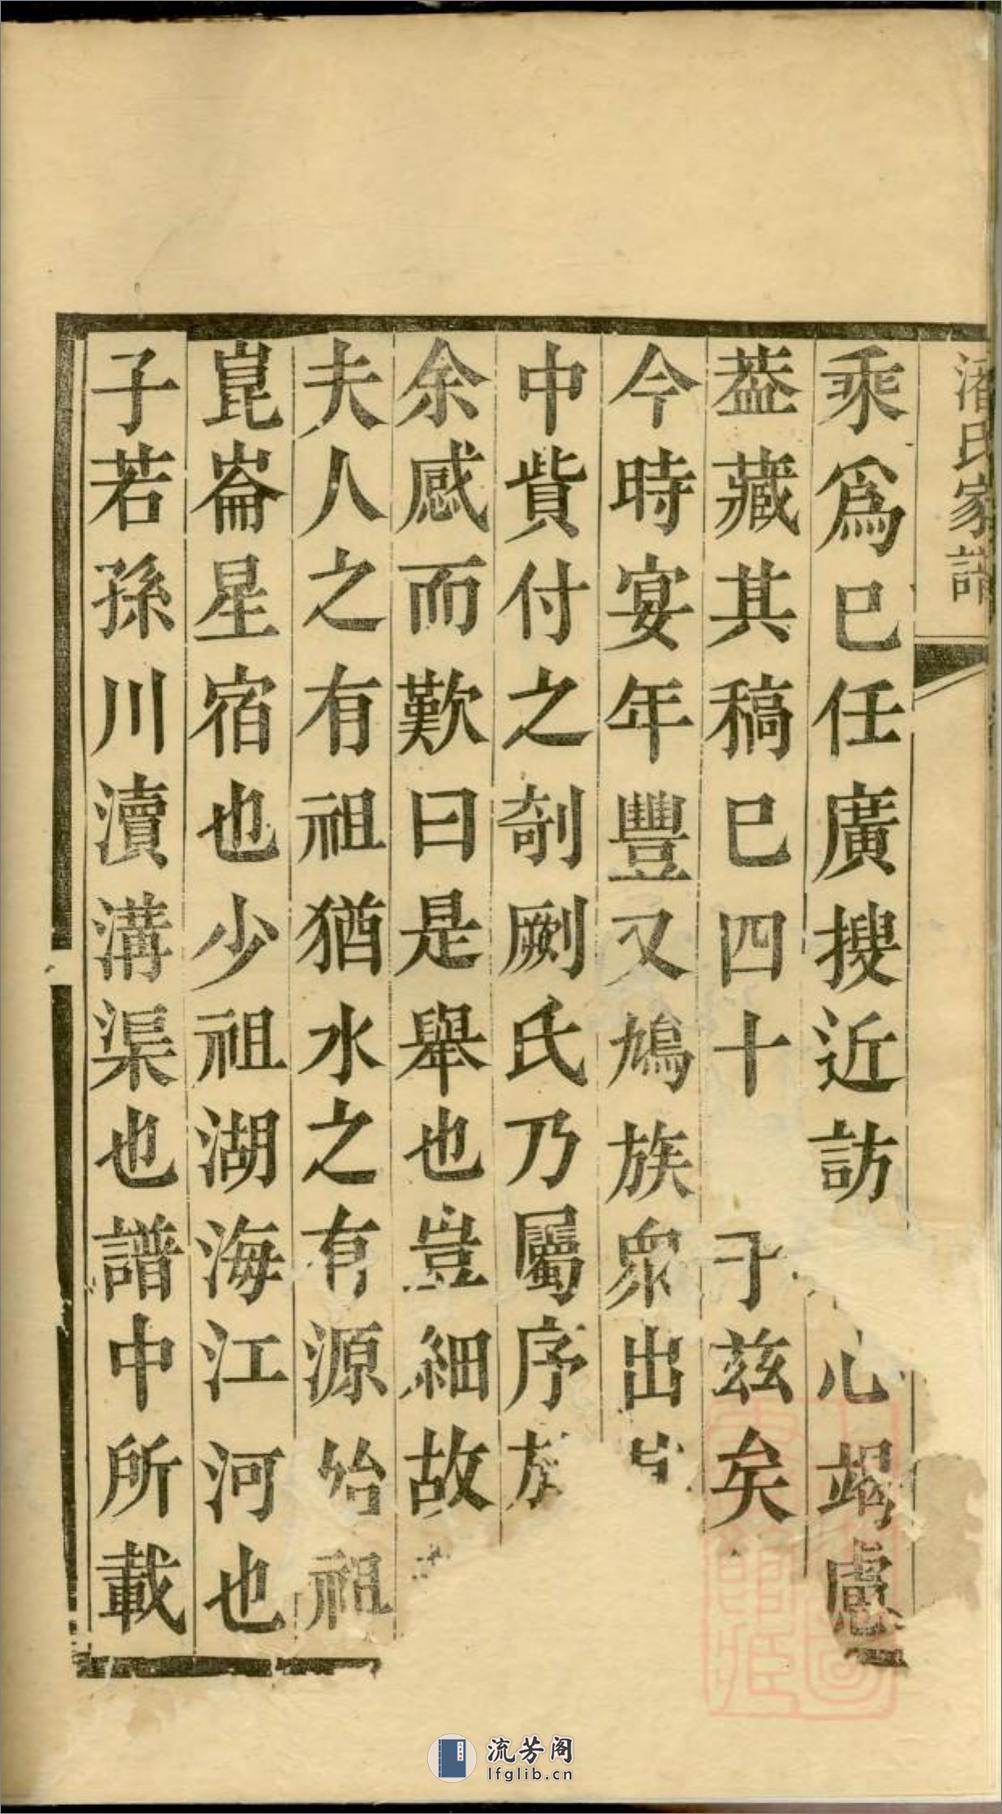 潘氏家譜
乘爲己任廣搜近訪心竭慮
葢藏其稿已四十于茲矣
今時宴年豐又鳩族衆出
中貲付之剞劂氏乃屬序族
余感而歎曰是舉也豈細故
夫人之有祖猶水之有源始祖
崑崙星宿也少祖湖海江河也
子若孫川瀆溝渠也譜中所載
流芳阁
lfglib.cn